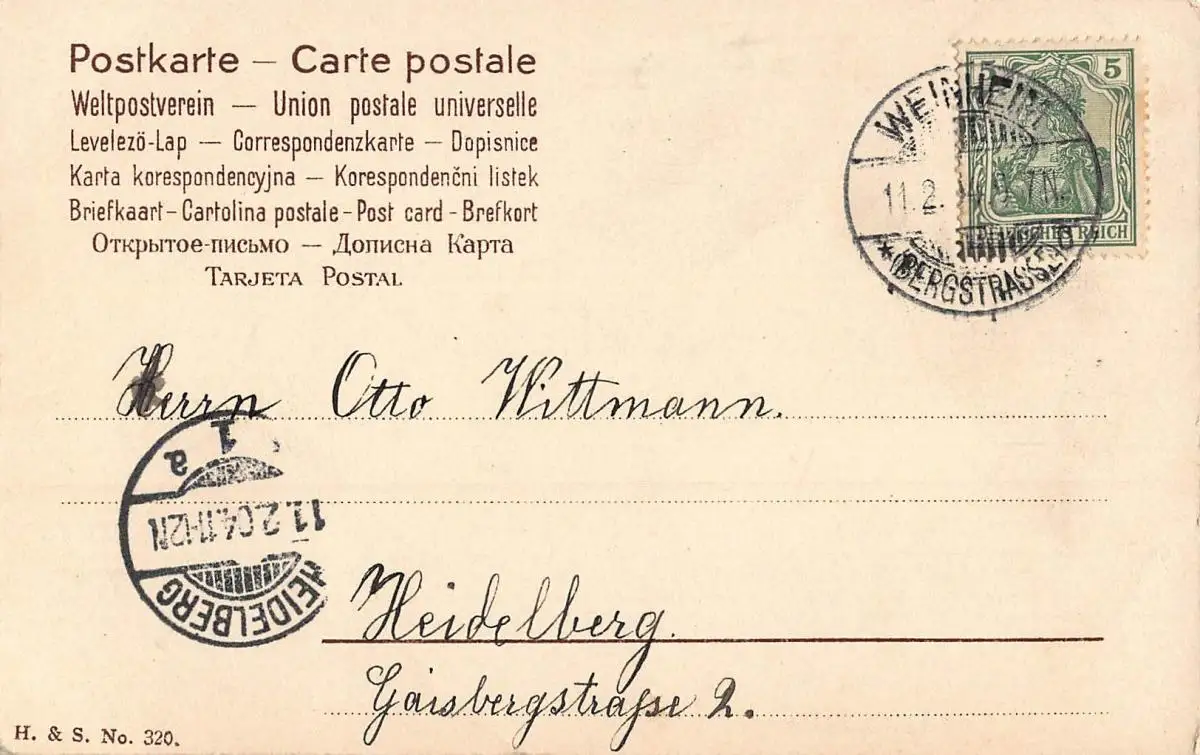 Postkarte – Carte postale
Weltpostverein — Union postale universelle
Levelező-Lap — Correspondenzkarte — Dopisnice
Karta korespondencyjna — Korespondenčni listek
Briefkaart - Cartolina postale - Post card - Brefkort
Открытое-письмо — Дописна Карта
Tarjeta Postal
5
DEUTSCHES REICH
WEINHEIM
11.2. 04. 7N.
* (BERGSTRASSE)
Herrn Otto Wittmann.
1
a
11.2.04.11-12N
HEIDELBERG
Heidelberg.
Gaisbergstraſse 2.
H. & S. No. 320.